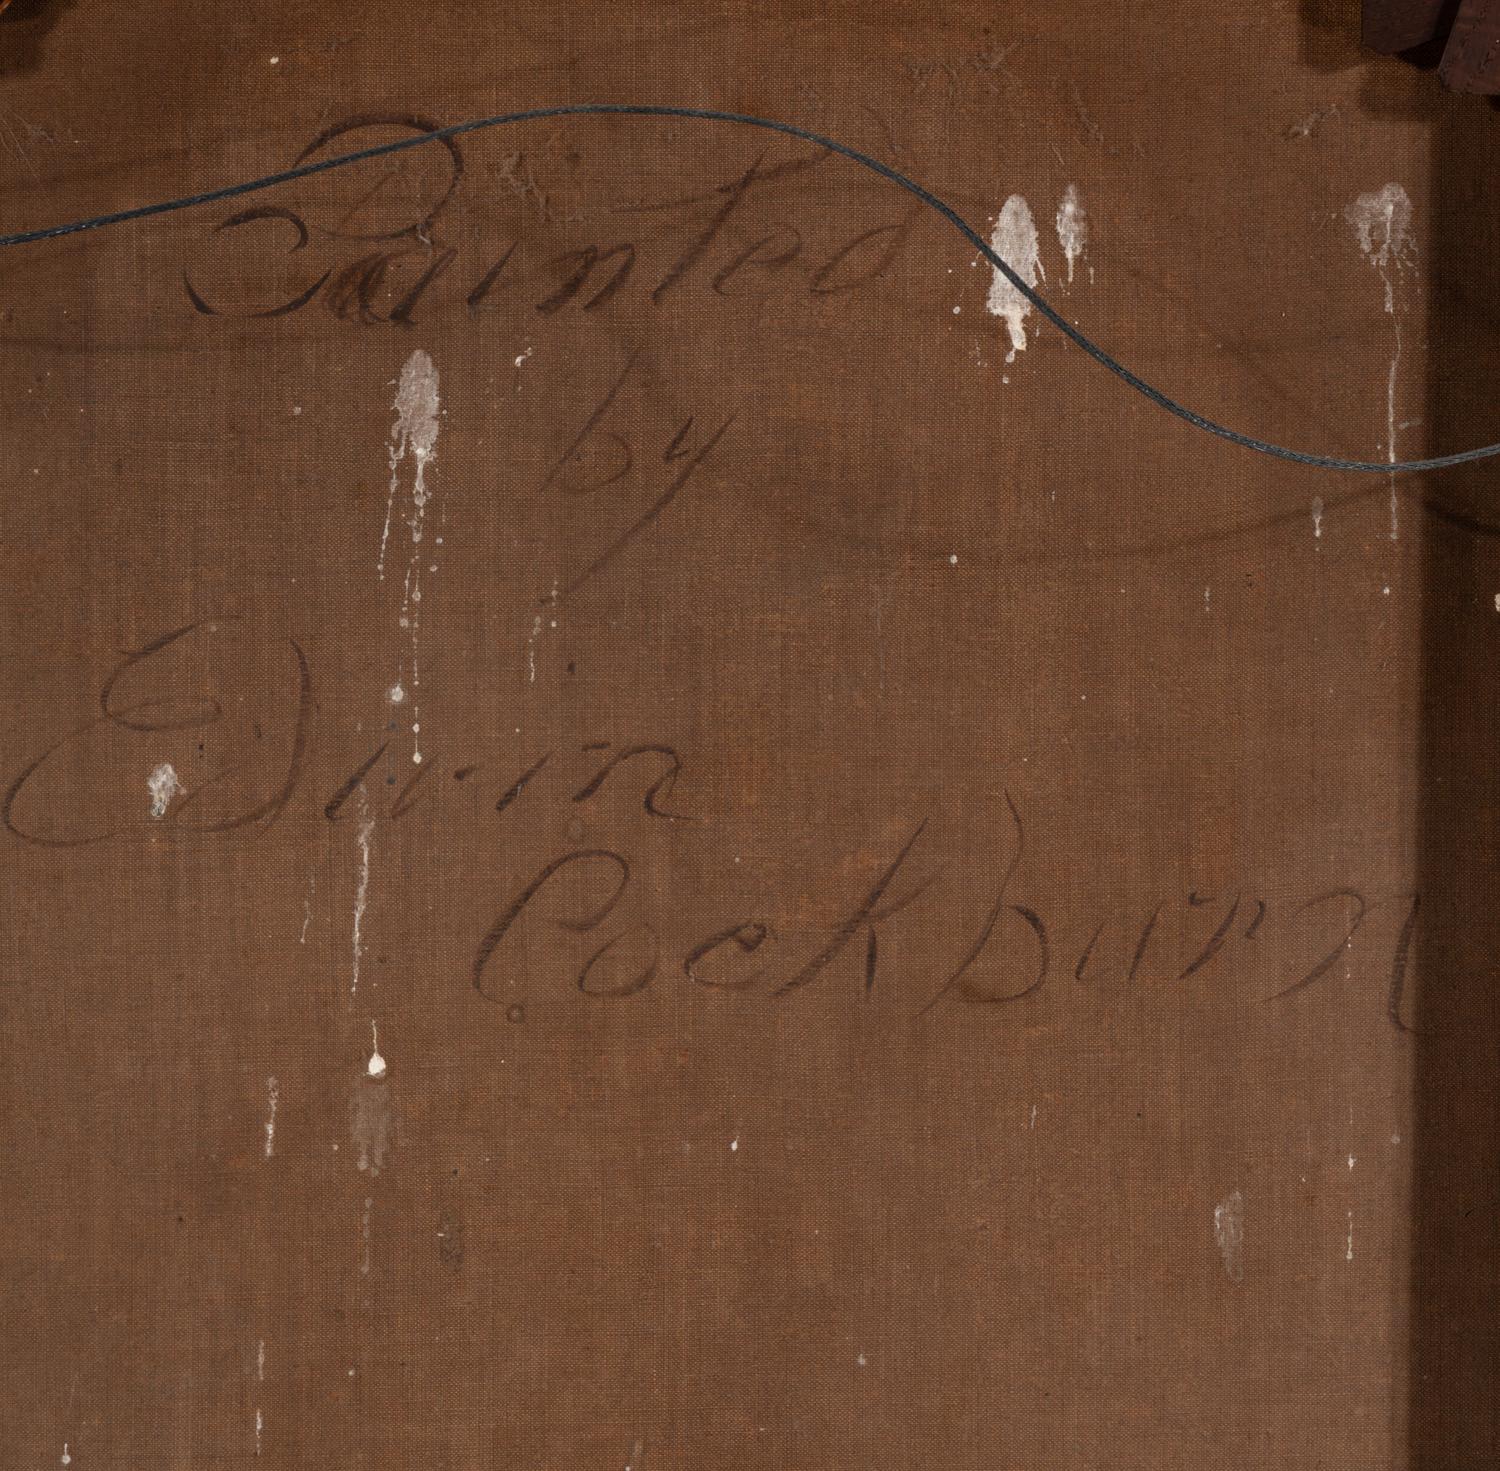 Painted
by
Edwin
Cockburn